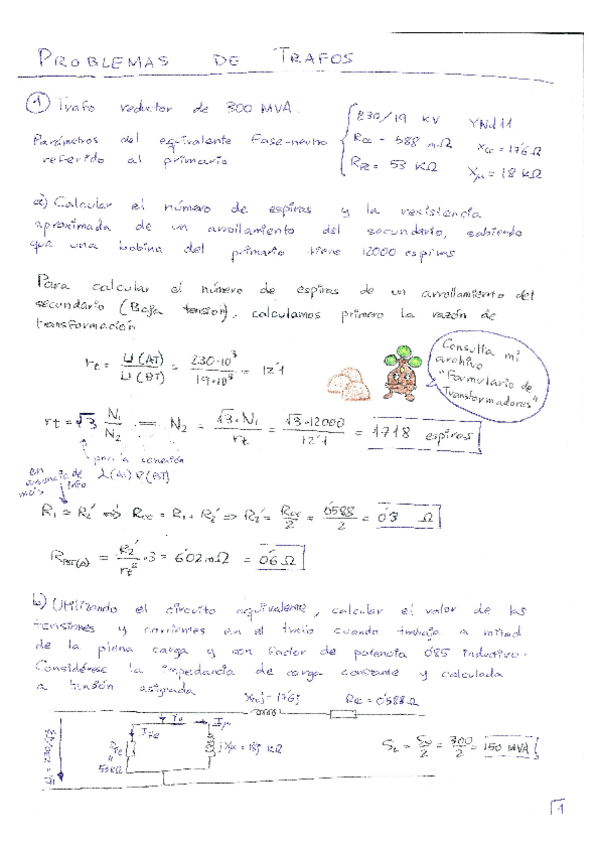 PROBLEMAS DE TRAFOS
① Trafo reductor de 300 MVA.
Parámetros del equivalente Fase-neutro
referido al primario
230/19 kV YNd11
Rcc = 588 mΩ Xcc = 17'6 Ω
RFe = 53 KΩ Xμ = 18 KΩ
a) Calcular el número de espiras y la resistencia
aproximada de un arrollamiento del secundario, sabiendo
que una bobina del primario tiene 12000 espiras
Para calcular el número de espiras de un arrollamiento del
secundario (Baja tensión), calculamos primero la razón de
transformación
rt = U(AT)/U(BT) = 230·10³/19·10³ = 12'1
Consulta mi
archivo
"Formulario de
Transformadores"
rt = √3 N1/N2 ⇒ N2 = √3·N1/rt = √3·12000/12'1 = 1718 espiras
para la conexión
en
ausencia de
más info
R1 ≃ R2' ⇒ Rcc = R1 + R2' ⇒ R2' = Rcc/2 = 0'588/2 = 0'3 Ω
= R2'/rt² · 3 = 6'02 mΩ = 0'6 Ω
b) Utilizando el circuito equivalente, calcular el valor de las
tensiones y corrientes en el trafo cuando trabaja a mitad
de la plena carga y con factor de potencia 0'85 inductivo.
Considérese la impedancia de carga constante y calculada
a tensión asignada
Xccj = 17'6j Rcc = 0'588 Ω
Io
IFe Iμ
RFe
53KΩ
jXμ = 18j KΩ
SL = SN/2 = 300/2 = 150 MVA
1